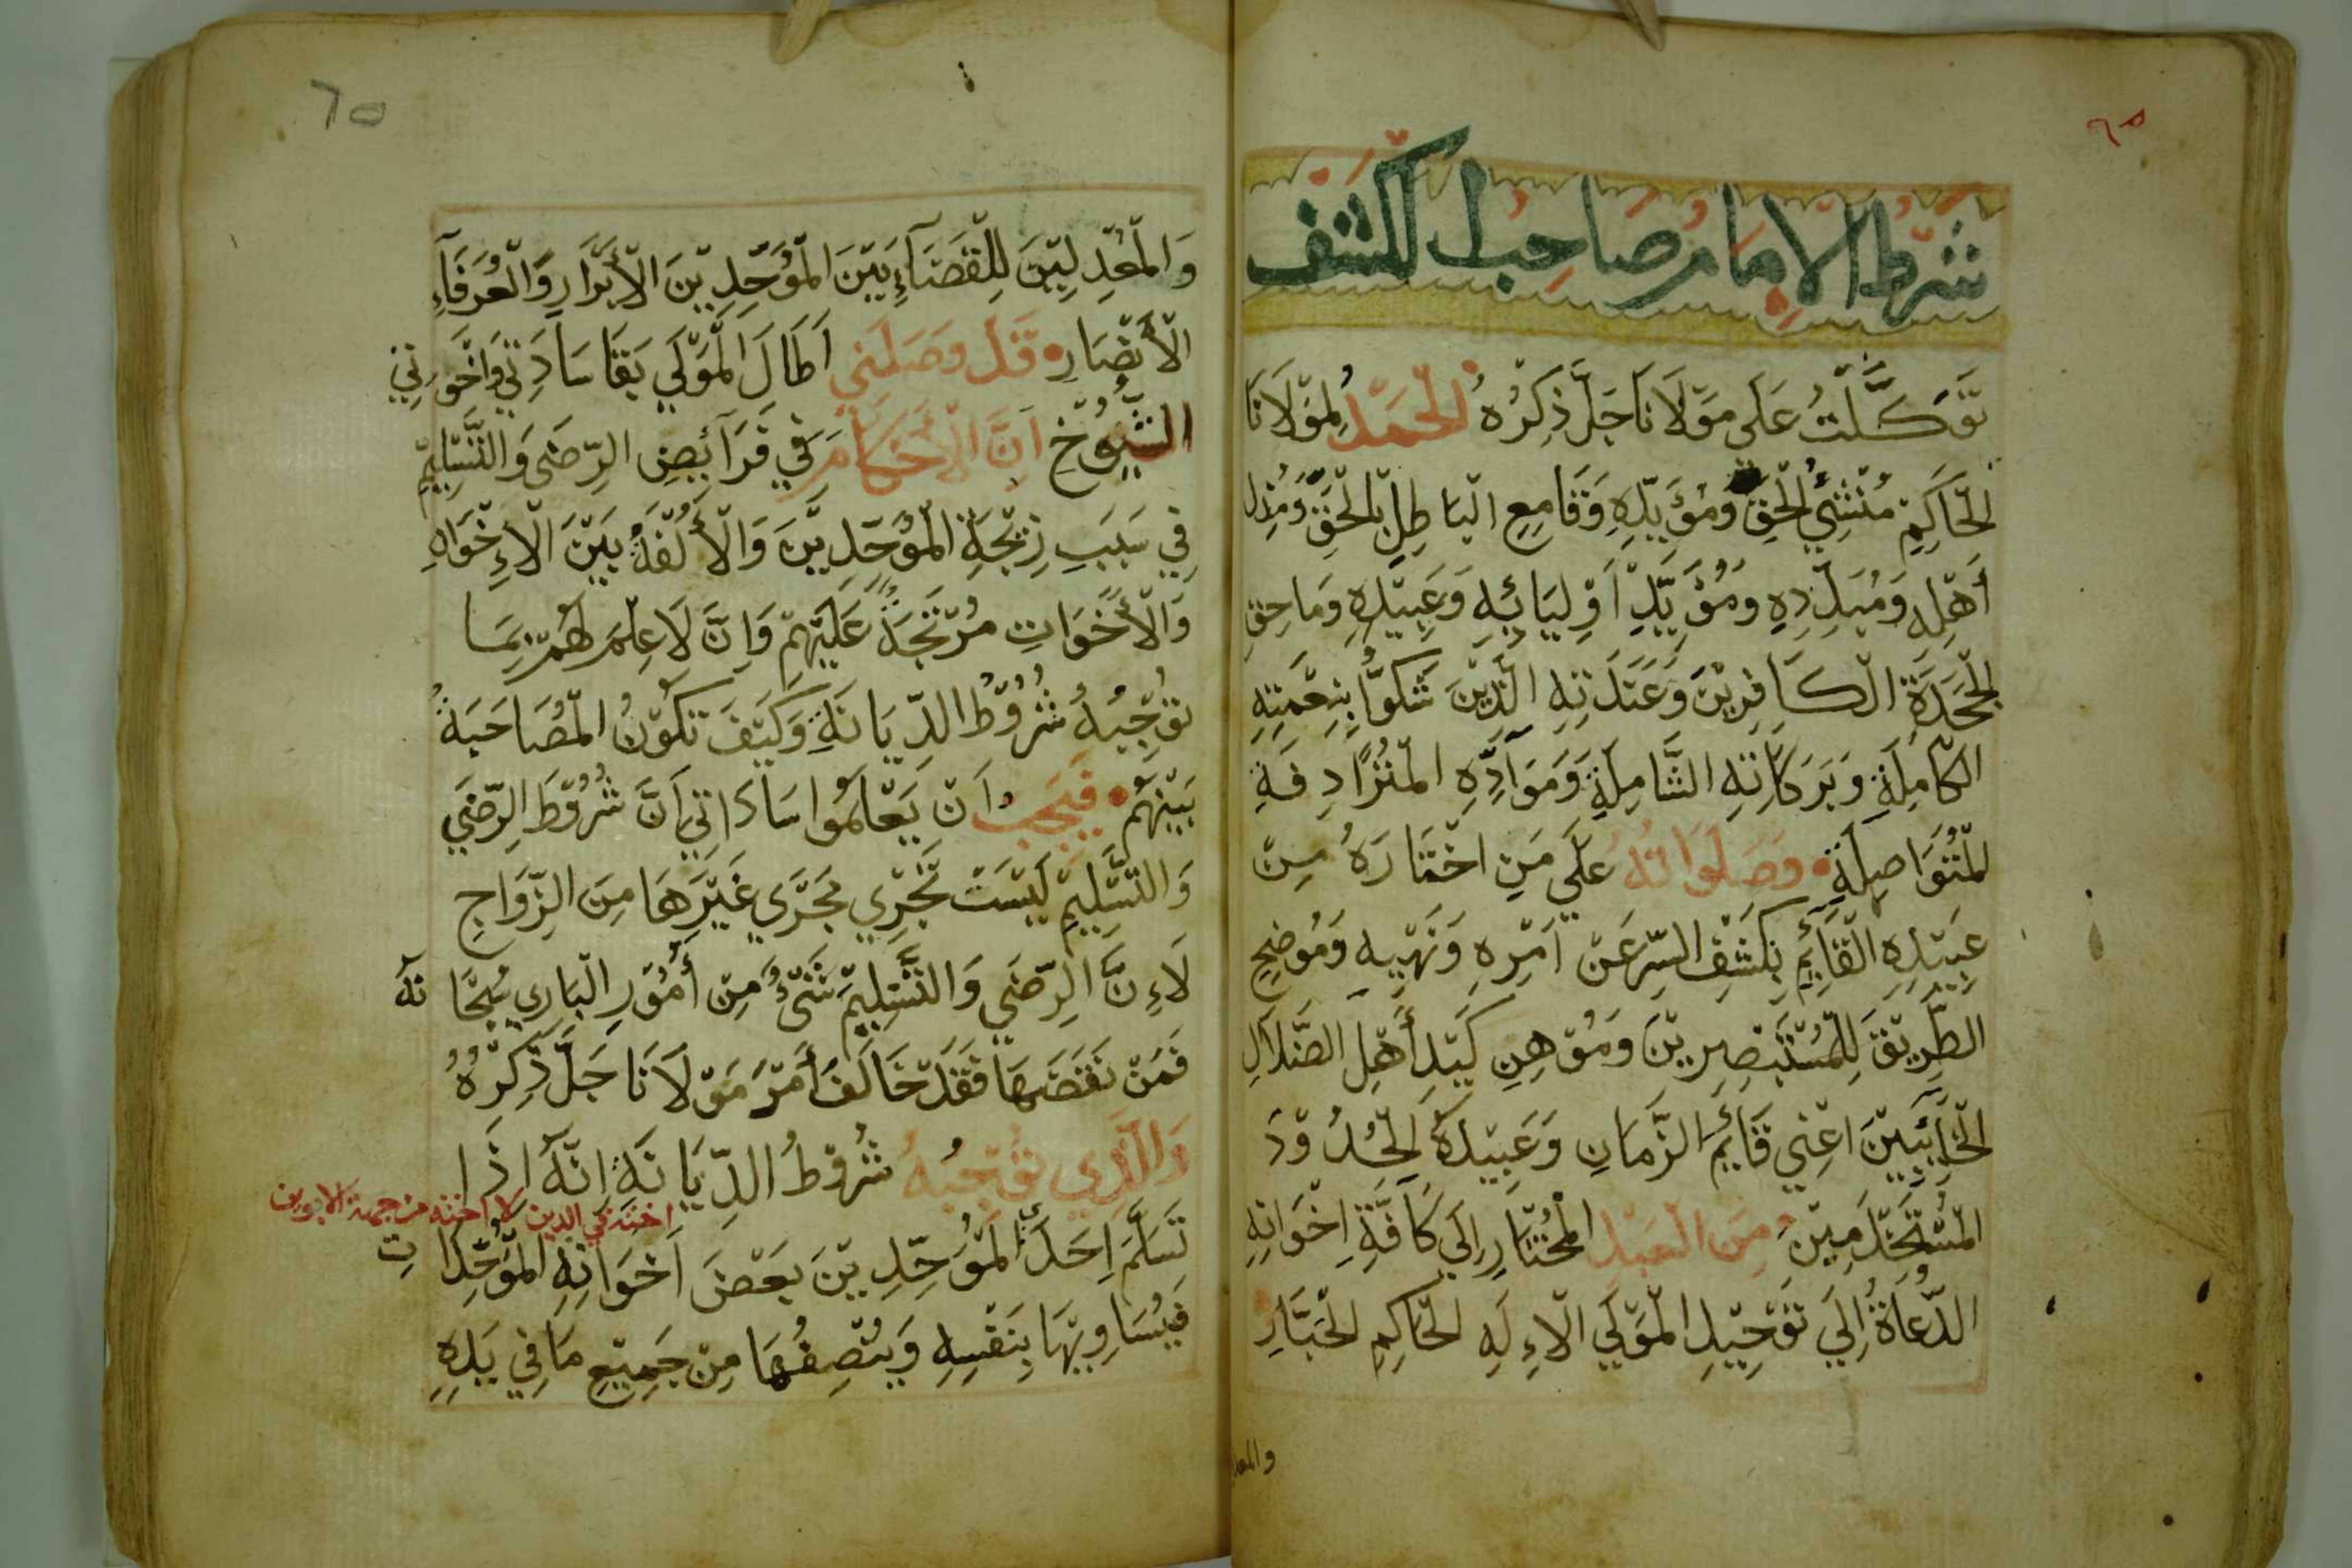 شرط الامام صاحب الكشف
تَوَكَّلْتُ عَلَى مَوْلَانَا جَلَّ ذِكْرُهُ الْحَمْدُ لِمَوْلَانَا
الْحَاكِمِ مُنْشِئُ الْحَقِّ وَمُؤَيِّدِهِ وَقَامِعِ الْبَاطِلِ بِالْحَقِّ وَمُذِل
أَهْلِهِ وَمُبَلِّدِهِ وَمُؤَيِّدِ اَوْلِيَائِهِ وَعَبِيْدِهِ وَمَاحِقِ
الْجَحَدَةِ الْكَافِرِيْنَ وَعَنَدَتِهِ الَّذِيْنَ شَكُّوا بِنِعْمَتِهِ
الْكَامِلَةِ وَبَرَكَاتِهِ الشَّامِلَةِ وَمَوَآدِّهِ الْمُتَرَادِفَةِ
الْمُتَوَاصِلَةِ وَصَلَوَاتُهُ عَلَي مَنِ اخْتَارَهُ مِنْ
عَبِيْدِهِ الْقَآئِمِ بِكَشْفِ السِّرِّ عَنْ اَمْرِهِ وَنَهْيِهِ وَمُوضِحِ
الطَّرِيْقَ لِلْمُسْتَبْصِرِيْنَ وَمُوْهِنِ كَيْدِ أَهْلِ الضَّلَالِ
الْخَآئِبِيْنَ اعْنِي قَآئِمَ الزَّمَانِ وَعَبِيْدَهُ الْحُدُوْدَ
الْمُسْتَخْدَمِيْنَ مِنَ الْعَبْدِ الْمُخْتَارِ اِلَي كَآفَّةِ اِخْوَانِهِ
الدُّعَاةُ اِلَي تَوْحِيْدِ الْمَوْلَي الْاءِلَهِ الْحَاكِمِ الْجَبَّارِ
٦٥
وَالْمُعَدِلِيْنَ لِلْقَضَآءِ بَيْنَ الْمُوَحِّدِيْنَ الْأَبْرَارِ وَالْعُرَفَآءِ
الْأَنْصَارِ قَدْ وصَلَني اَطَالَ الْمَوْلَي بَقَا سَادَتِي وَاخْوَتِي
الشُّيُوْخِ اَنَّ الْأَحْكَامَ فِي فَرَآئِضِ الرِّضَى وَالتَّسْلِيْمِ
فِي سَبَبِ زِيْجَةِ الْمُوَحِّدِيْنَ وَالْأُلْفَةُ بَيْنَ الْاءِخْوَانِ
وَالْأَخَوَاتِ مُرْتَجَةً عَلَيْهِمْ وَاِنَّ لَا عِلْمَ لَهُمْ بِمَا
تُوْجِبُهُ شُرُوْطُ الدِّيَانَةِ وَكَيْفَ تَكُوْنُ الْمُصَاحَبَةُ
بَيْنَهُم فَيَجِبُ اَنْ يَعْلَمُوا سَادَاتِي اَنَّ شُرُوْطَ الرِّضَي
وَالتَّسْلِيْمِ لَيْسَتْ تَجْرِي مَجْرَي غَيْرَهَا مِنَ الزَّوَاجِ
لَاءِنَّ الرِّضَي وَالتَّسْلِيْمَ شَيْءٌ مِنْ أُمُوْرِ الْبَارِي سُبْحَانَهُ
فَمَنْ نَقَضَهَا فَقَدْ خَالَفَ أَمْرَ مَوْلَانَا جَلَّ ذِكْرُهُ
وَالَّذِي تُوْجِبُهُ شُرُوْطُ الدِّيَانَةِ اِنَّهُ اِذَا
اخته في الدين لا اخته من جهة الابوين
تَسَلَّمَ اِحَدَ الْمُوَحِّدِيْنَ بَعْضَ اَخَوَاتِهِ الْمُوَحِّدَاتِ
فَيُسَاوِيْهَا بِنَفْسِهِ وَيُنْصِفُهَا مِنْ جَمِيْعِ مَا فِي يَدِهِ